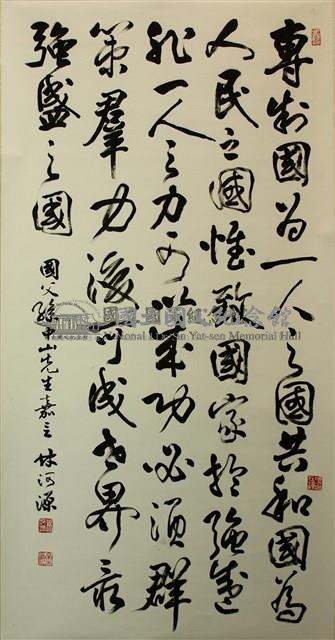 專制國為一人之國共和國為
人民之國惟致國家於強盛
非一人之力可以成功必須群
策群力後可成世界最
強盛之國
國父孫中山先生嘉言 林河源
國立國父紀念館
National Dr. Sun Yat-sen Memorial Hall